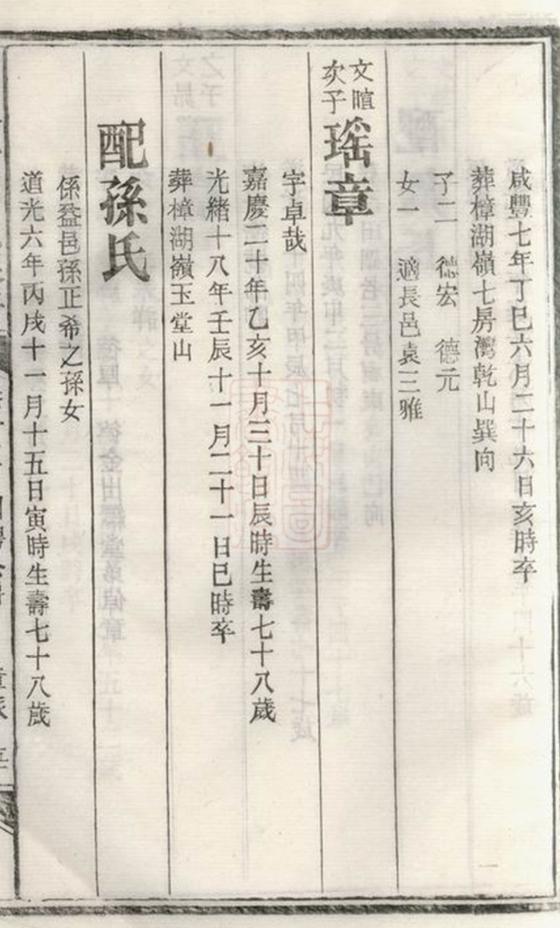 咸豐七年丁巳六月二十六日亥時卒
葬樟湖嶺七房灣乾山巽向
子二　德宏　德元
女一　適長邑袁三雅
文暄
次子
瑤章
字卓哉
嘉慶二十年乙亥十月三十日辰時生壽七十八歲
光緒十八年壬辰十一月二十一日巳時卒
葬樟湖嶺玉堂山
配孫氏
係益邑孫正希之孫女
道光六年丙戌十一月十五日寅時生壽七十八歲